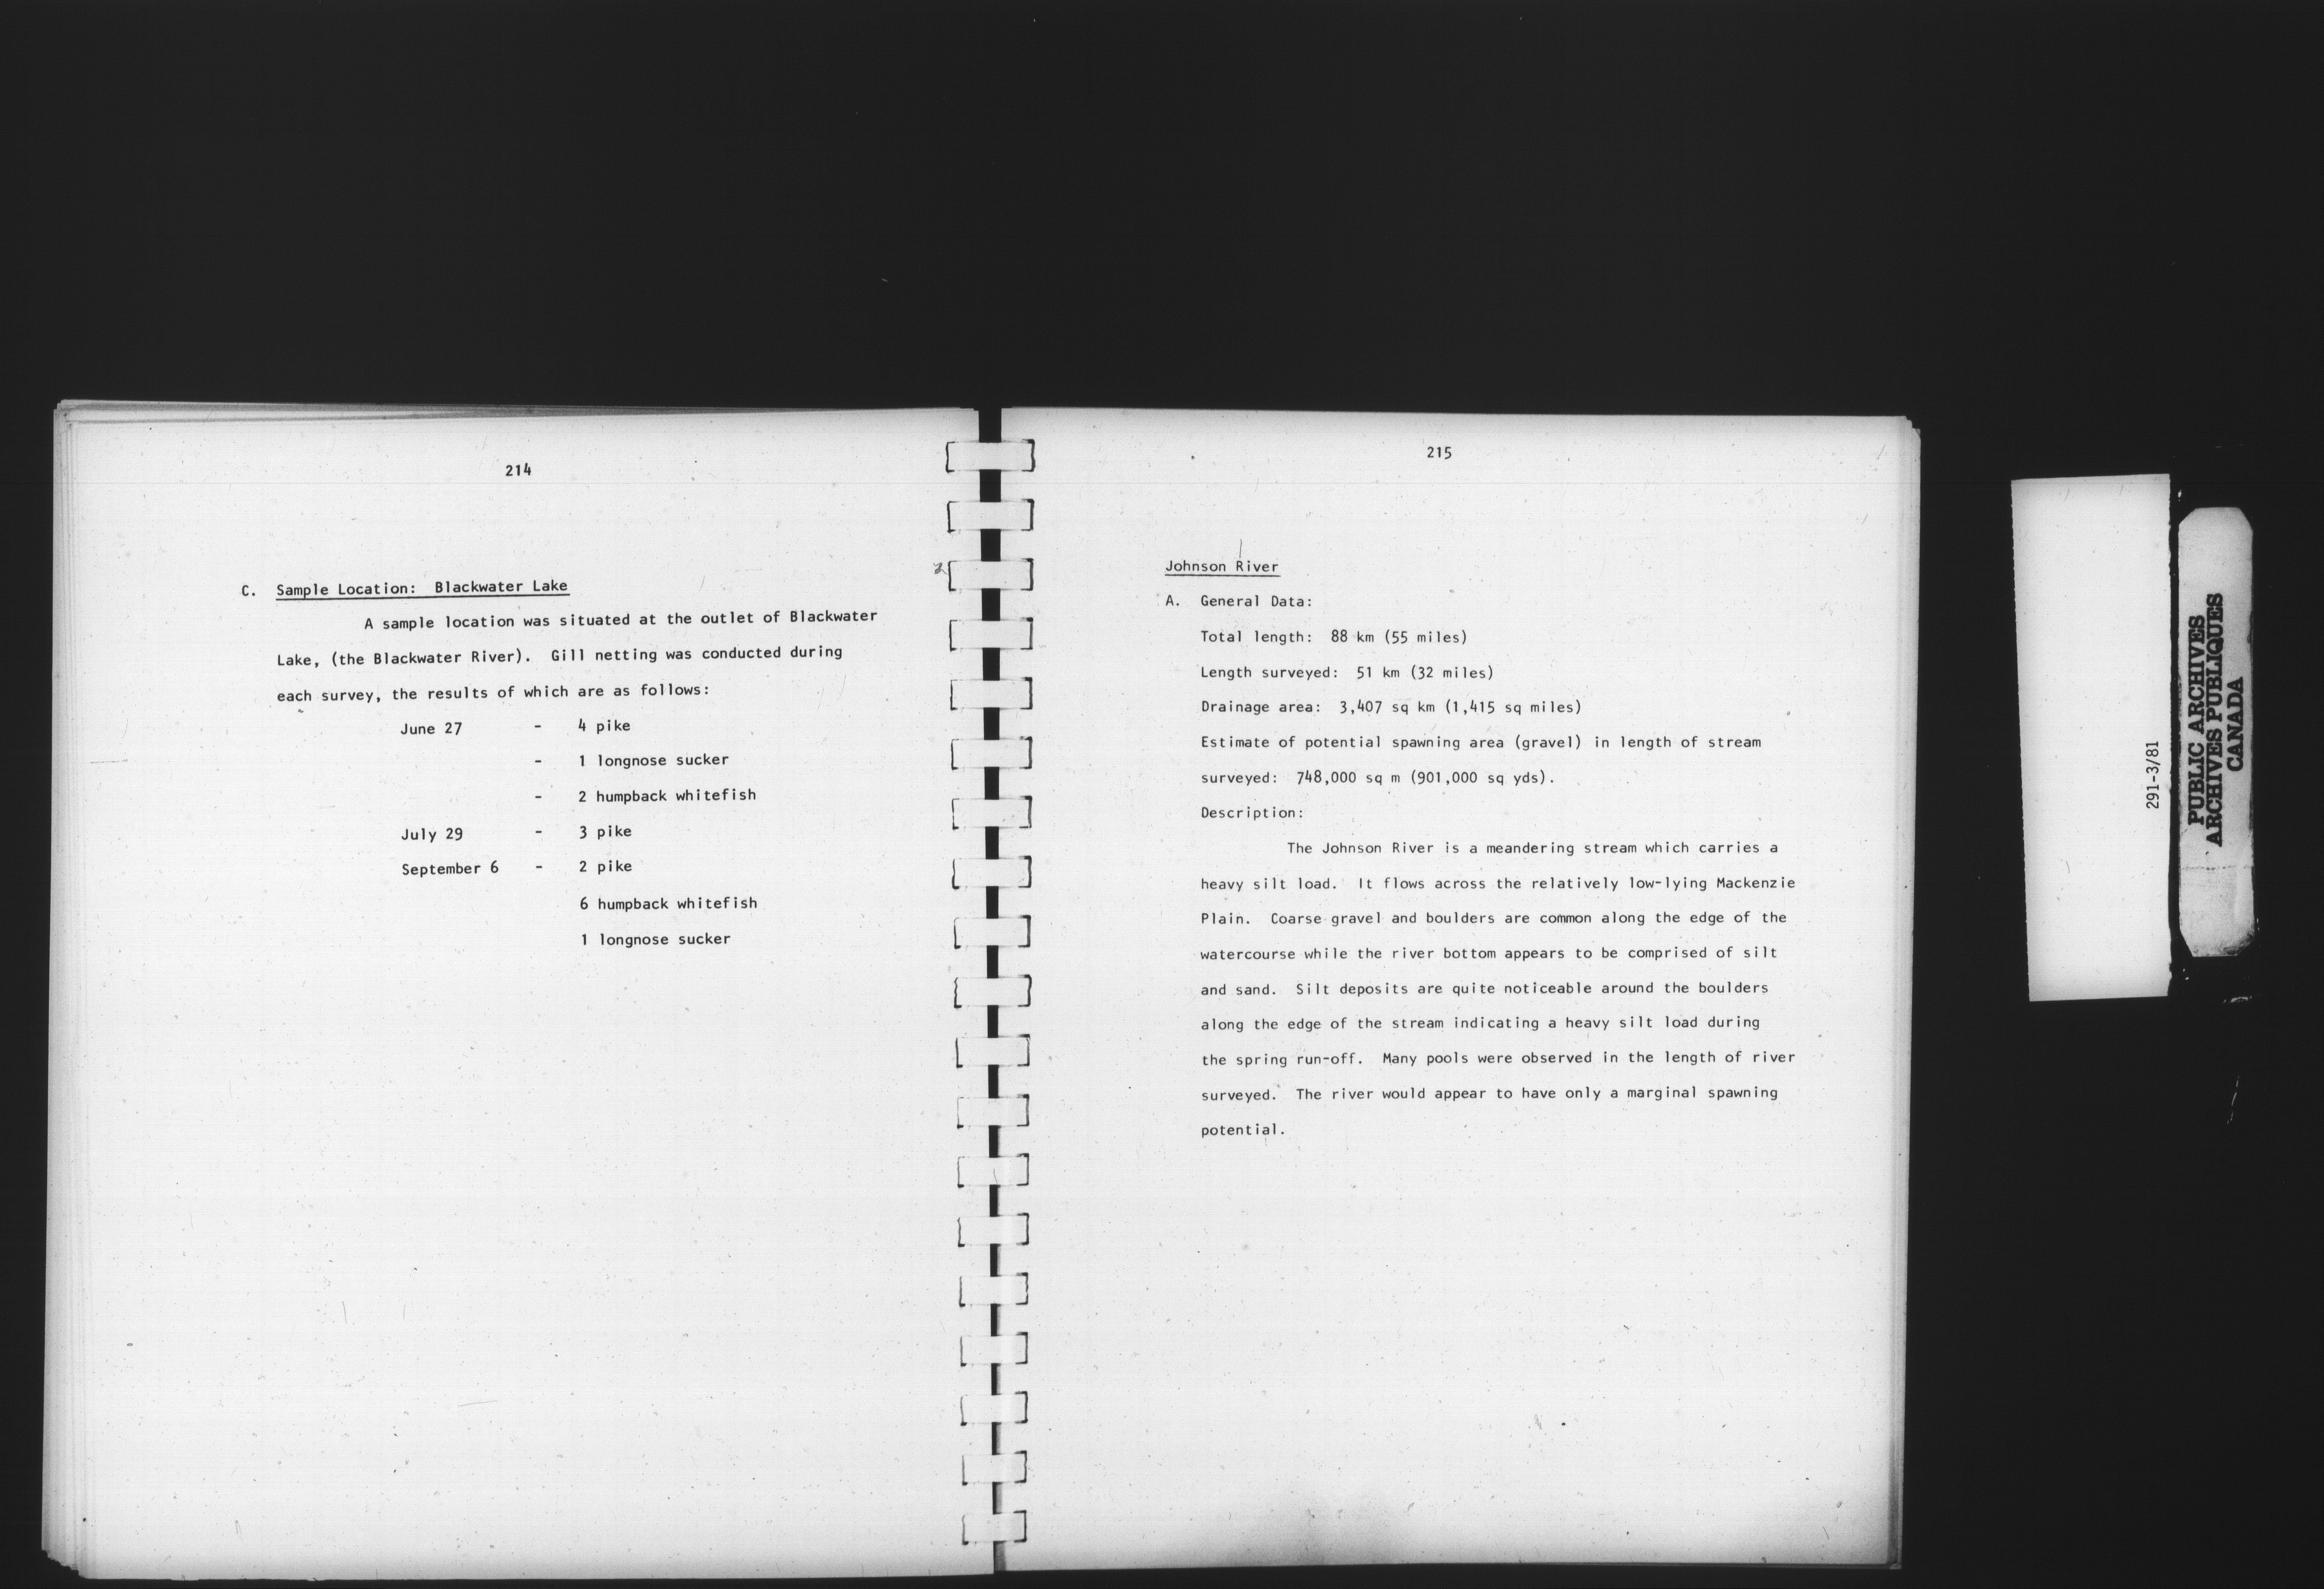 214
C. Sample Location: Blackwater Lake
A sample location was situated at the outlet of Blackwater
Lake, (the Blackwater River). Gill netting was conducted during
each survey, the results of which are as follows:
June 27 - 4 pike
- 1 longnose sucker
- 2 humpback whitefish
July 29 - 3 pike
September 6 - 2 pike
6 humpback whitefish
1 longnose sucker
215
Johnson River
A. General Data:
Total length: 88 km (55 miles)
Length surveyed: 51 km (32 miles)
Drainage area: 3,407 sq km (1,415 sq miles)
Estimate of potential spawning area (gravel) in length of stream
surveyed: 748,000 sq m (901,000 sq yds).
Description:
The Johnson River is a meandering stream which carries a
heavy silt load. It flows across the relatively low-lying Mackenzie
Plain. Coarse gravel and boulders are common along the edge of the
watercourse while the river bottom appears to be comprised of silt
and sand. Silt deposits are quite noticeable around the boulders
along the edge of the stream indicating a heavy silt load during
the spring run-off. Many pools were observed in the length of river
surveyed. The river would appear to have only a marginal spawning
potential.
291-3/81
PUBLIC ARCHIVES
ARCHIVES PUBLIQUES
CANADA